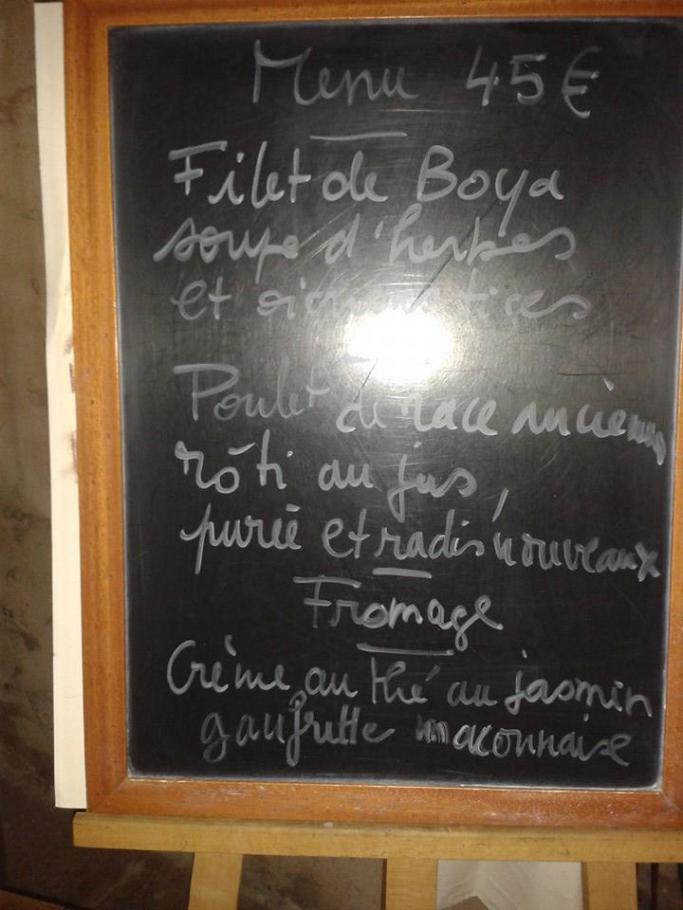 Menu 45€
Filet de Boya
soupe d'herbes
et
Poulet de race ancienne
rôti au jus,
purée et radis nouveaux
Fromage
Crème au thé au jasmin
gaufrette maconnaise